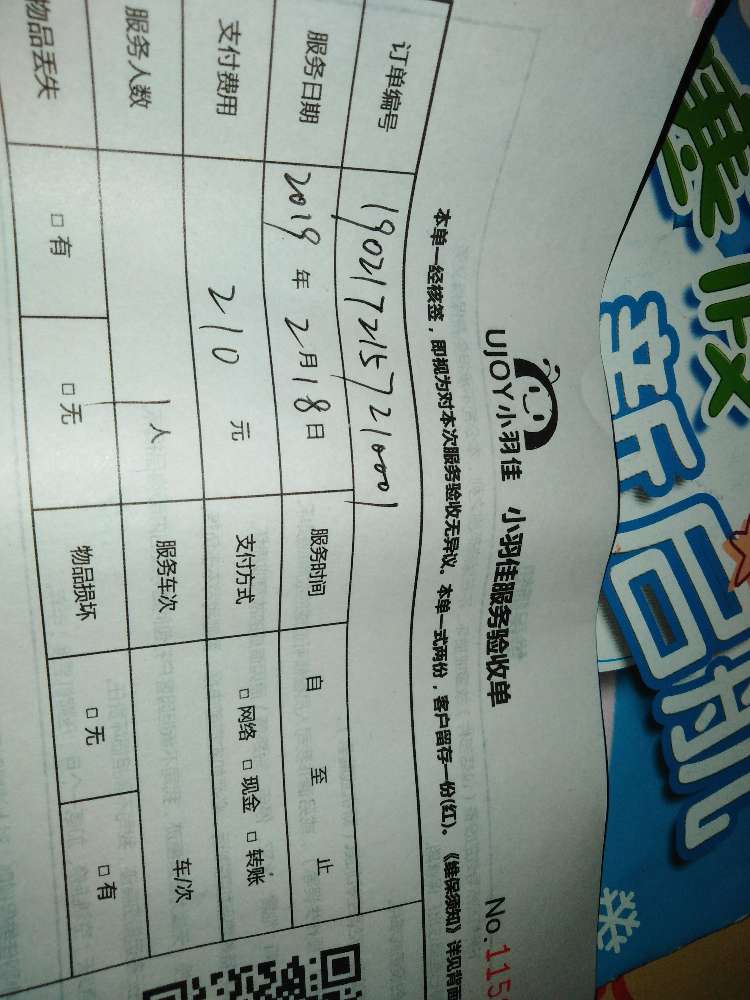 UJOY小羽佳 小羽佳服务验收单
No.115
本单一经核签，即视为对本次服务验收无异议、本单一式两份，客户留存一份(红)。《维保须知》详见背面
订单编号 1902172157210001
服务日期 2019年2月18日 服务时间 自 至 止
支付费用 210 元 支付方式 □网络 □现金 □转账
服务人数 1人 服务车次 车/次
物品丢失 □有 □无 物品损坏 □无 □有
寒假
新启航